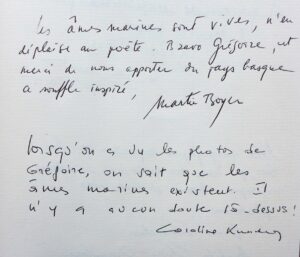 Les âmes marines sont vives, n'en
déplaise au poète. Bravo Grégoire, et
merci de nous apporter du pays basque
ce souffle inspiré,
Martin Boyer
Lorsqu'on a vu les photos de
Grégoire, on sait que les
âmes marines existent. Il
n'y a aucun doute là-dessus!
Caroline